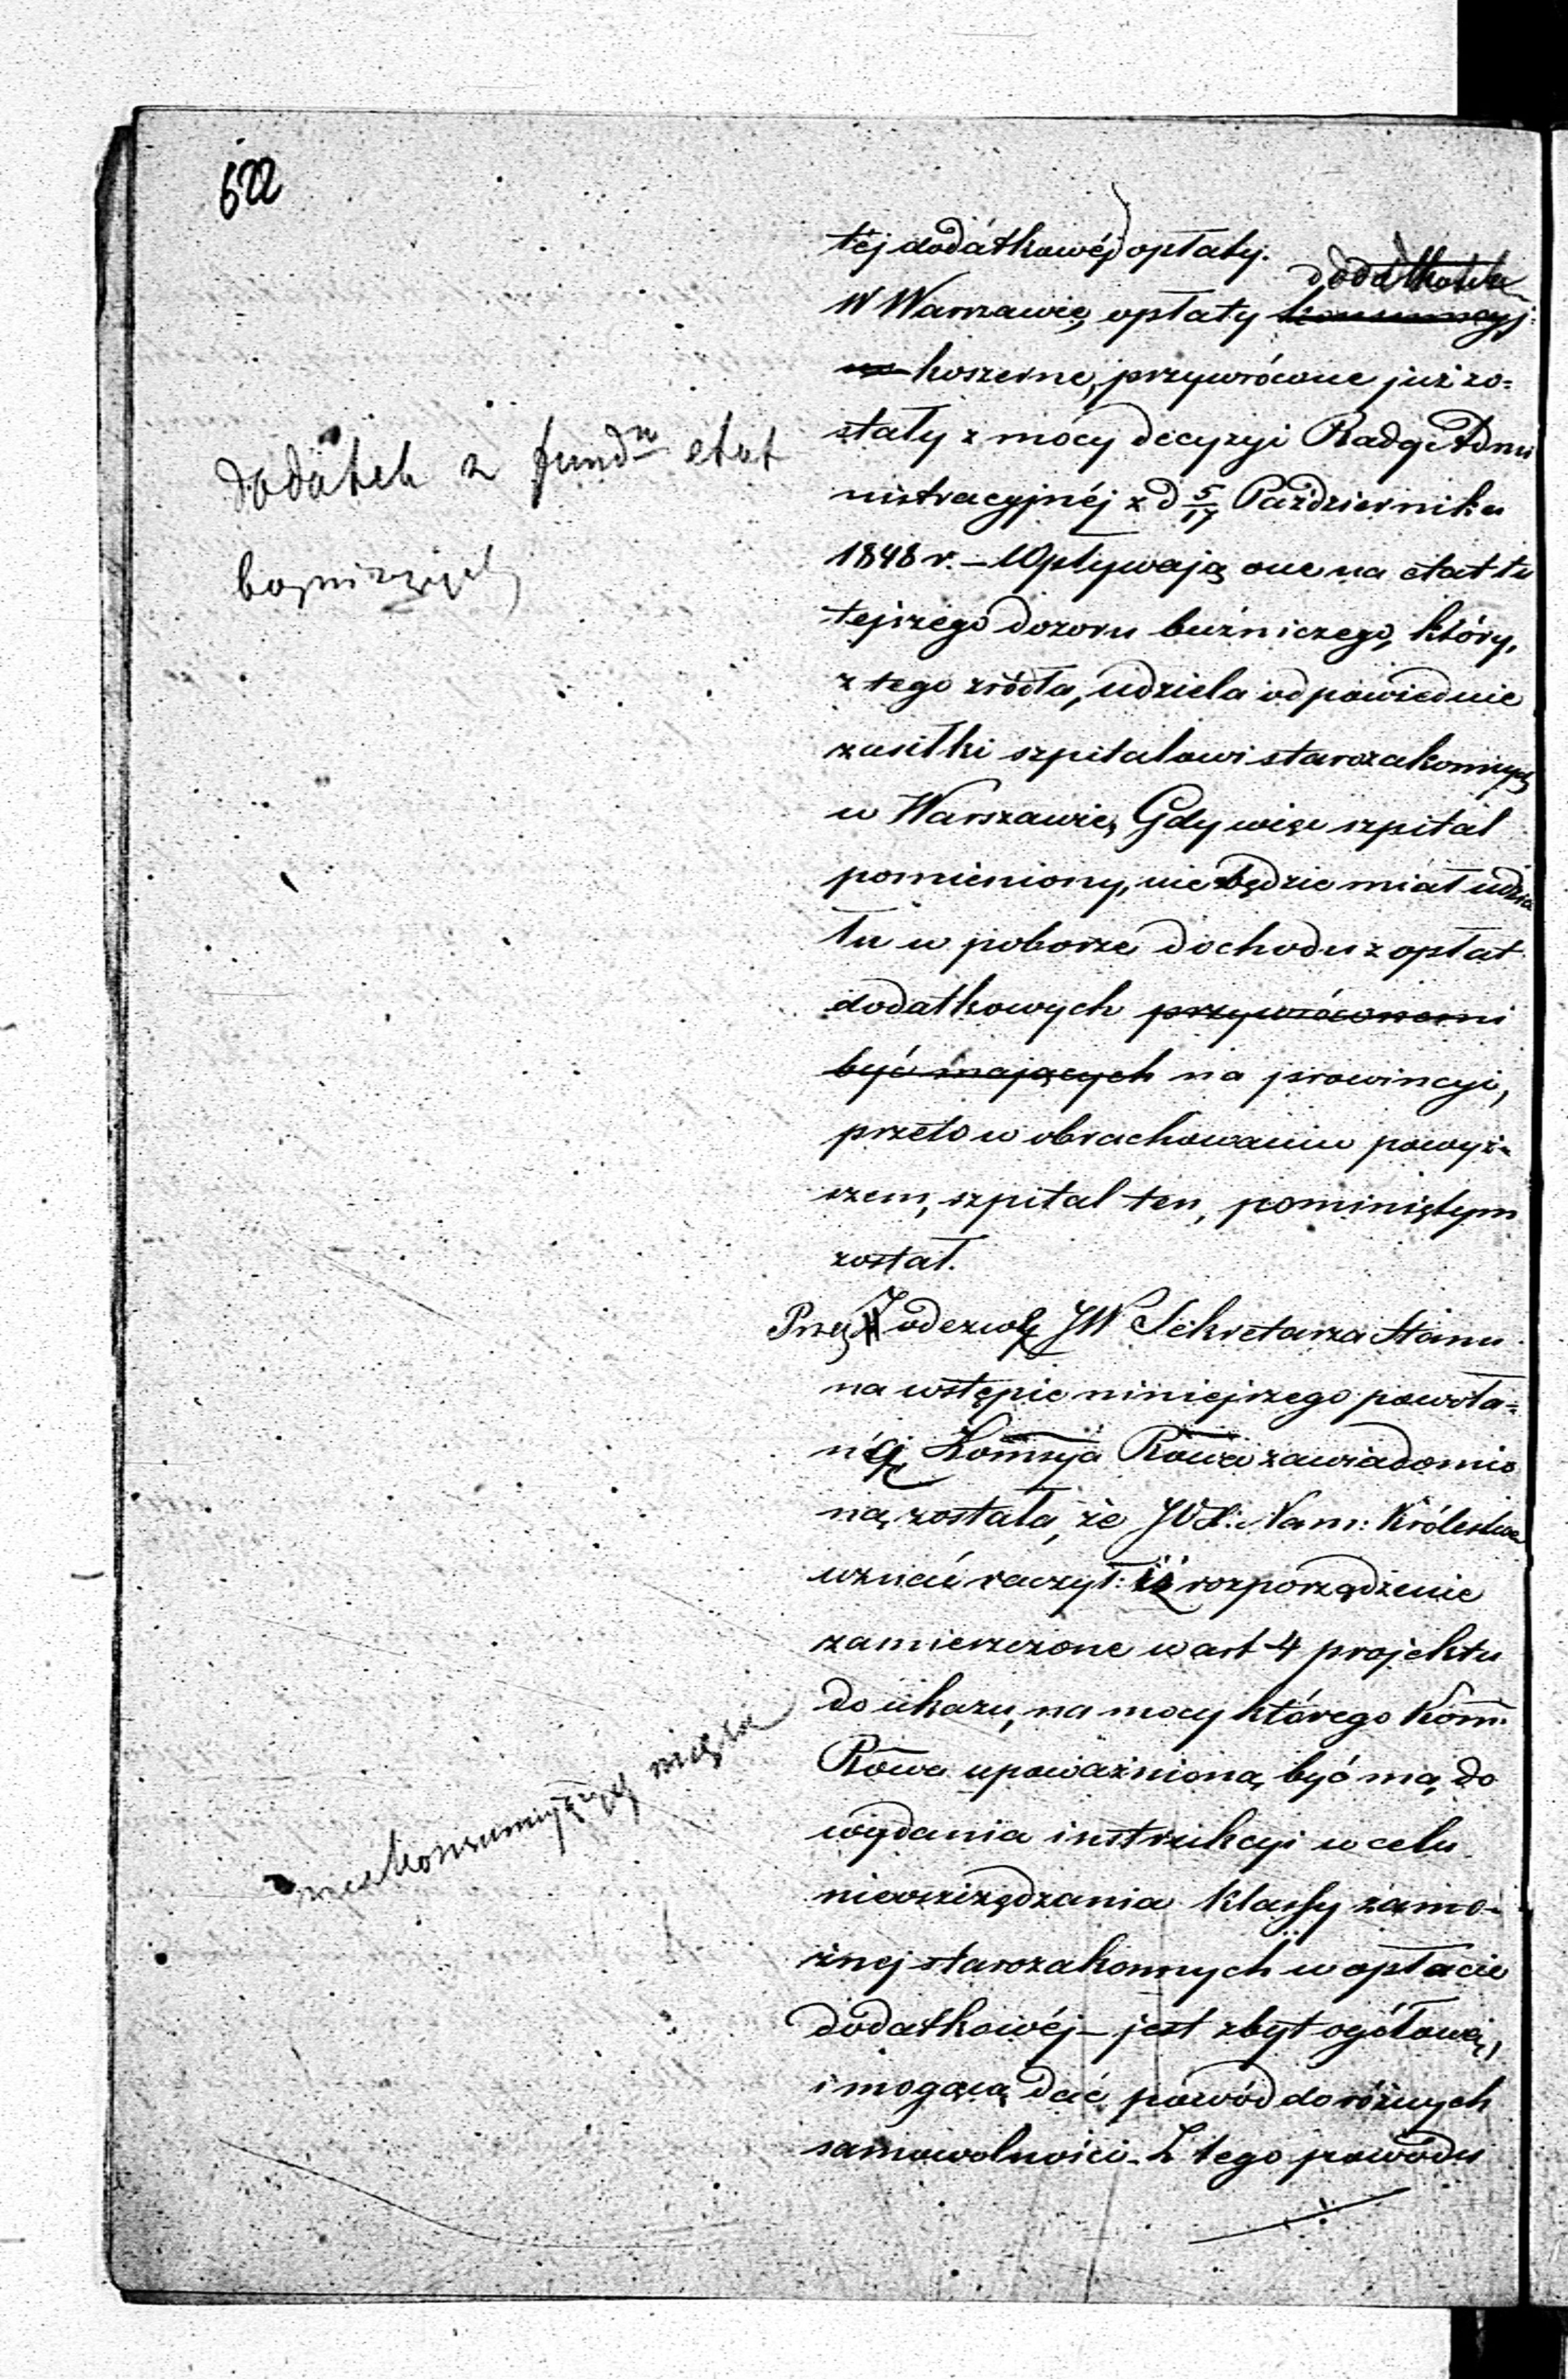 622
téj dodatkowéj opłaty.
dodatkowe
W Warszawie, opłaty konsumcyj-
ne koszerne, przywrócone już zo=
stały z mocy decyzyi Rady Admi
nistracyjnéj z d 5/17 Października
1848 r. – Wpływają one na etat tu
tejszego dozoru bużniczego, który,
z tego źródła, udziela odpowiednie
zasiłki szpitalowi starozakonnych
w Warszawie, Gdy więc szpital
pomieniony, nie będzie miał udzia
łu w poborze dochodu z opłat
dodatkowych przywróconemi
być mających na prowincyi,
przeto w obrachowaniu powyż-
szem, szpital ten, pominiętym
został.
Przez odezwę JW Sekretarza Stanu
na wstępie niniejszego powoła=
ną Kommsya Rowa zawiadomio
ną została, że JO X: Nam: Królestwa
uznać raczył: iż rozporządzenie
zamieszczone w art 4 projektu
do ukazu, na mocy którego Komm.
Rowa upoważnioną być ma, do
wydania instrukcyi w celu
nieoszczędzania klassy zamo-
żnej starozakonnych w opłacie
dodatkowéj – jest zbyt ogółowe,
i mogące dać powód do różnych
samowolności. Z tego powodu
dodatek z fund etat
bożniczych
niekonsumujących mięsa